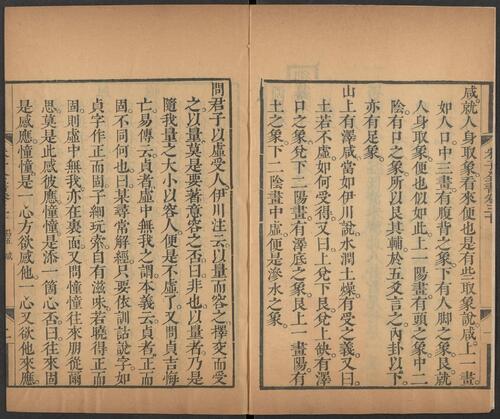 咸就人身取象看來便也是有些取象說咸上一畫
如人口中三畫有腹背之象下有人脚之象艮就
人身取象便也似如此上一陽畫有頭之象中二
陰有口之象所以艮其輔於五爻言之内卦以下
亦有足象
山上有澤咸當如伊川說水潤土燥有受之義又曰
土若不虛如何受得又曰上兌下艮兌上缺有澤
口之象兌下二陽畫有澤底之象艮上一畫陽有
土之象下二陰畫中虛便是滲水之象
問君子以虛受人伊川注云以量而容之擇交而受
之以量莫是要著意容之否曰非也以量者乃是
隨我量之大小以容人便是不虛了又問貞吉悔
亡易傳云貞者虛中無我之謂本義云貞者正而
固不同何也曰某尋常解經只要依訓詁說字如
貞字作正而固子細玩索自有滋味若曉得正而
固則虛中無我亦在裏面又問憧憧往來朋從爾
思莫是此感彼應憧憧是添一箇心否曰往來固
是感應憧憧是一心方欲感他一心又欲他來應